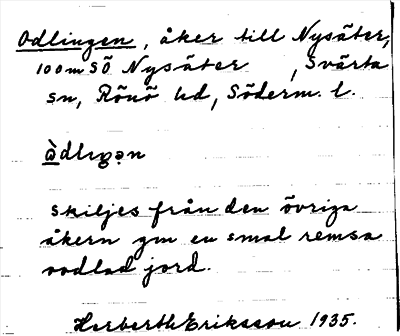 Odlingen, åker till Nysäter,
100 m SÖ Nysäter, Svärta
sn, Rönö hd, Söderm. l.
skiljes från den övriga
åkern gm en smal remsa
oodlad jord.
Herberth Eriksson 1935.